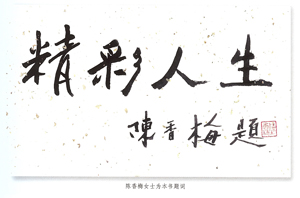 精彩人生
陳香梅題
陈香梅女士为本书题词